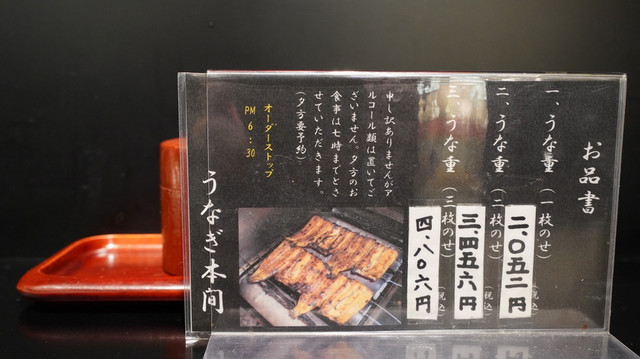 お品書
一、うな重(一枚のせ)
二、〇五二円
(税込)
二、うな重(二枚のせ)
三、四五六円
(税込)
三、うな重(三枚のせ)
四、八〇六円
(税込)
申し訳ありませんがア
ルコール類は置いてご
ざいません。夕方のお
食事は七時までとさ
せていただきます。
(夕方要予約)
オーダーストップ
PM 6:30
うなぎ本間